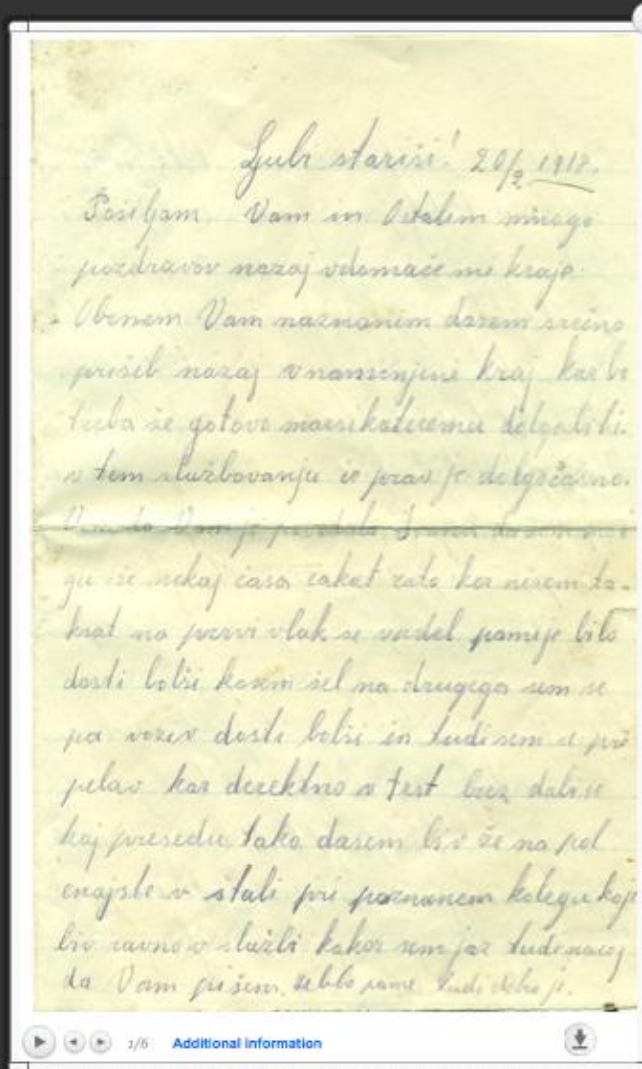 Ljubi stariši! 20/2 1918.
Pošiljam Vam in Ostalim mnogo
pozdravov nazaj vdomače mi kraje.
Obenem Vam naznanim dasem srečno
prišel nazaj vnamenjene kraj kar bo
treba še gotovo marsikateremu
v tem službovanju je dolgočasno.
Vam
še nekaj časa čakat zato ker nisem ta-
krat na prvi vlak se vsedel pameje bilo
dosti bolši kosem šel na drugega sem se
pa voziv dosti bolši in tudi sem se pri
pelav kar derektno v test brez dabi se
kaj presedu, tako dasem biv že na pol
enajste v štali pri poznanem kolegu koje
biv ravno v službi kakor sem jaz tudi
da Vam pišem.
1/6 Additional information